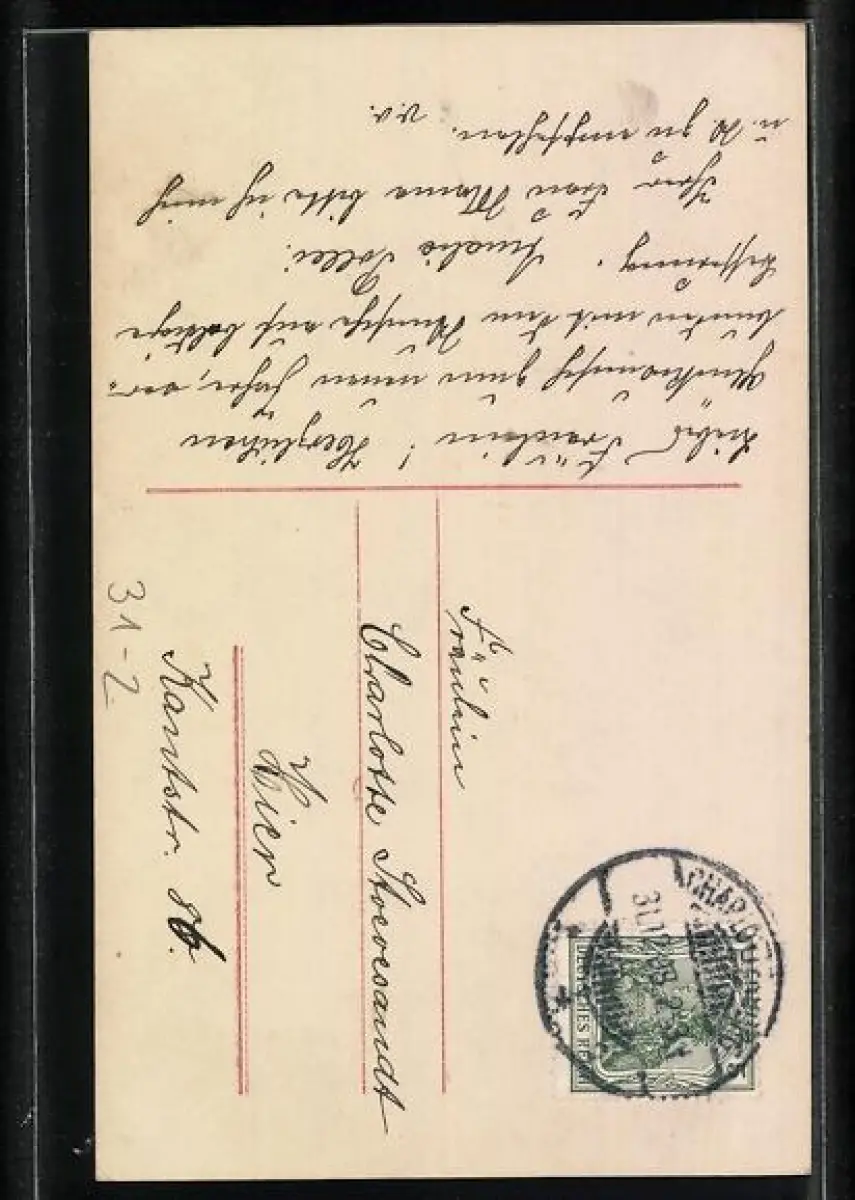 Liebes Fräulein! Herzlichen
Glückwunsch zum neuen Jahre, ver-
bunden mit dem Wunsche auf baldige
Besserung.
Ihrer Frau Mama bitte ich mich
u. K. zu empfehlen. D. O.
Fräulein
Charlotte Stoevesandt
Hier
Kantstr. 86.
31-2
CHARLOTTENBURG
31.12.
DEUTSCHES REICH
5